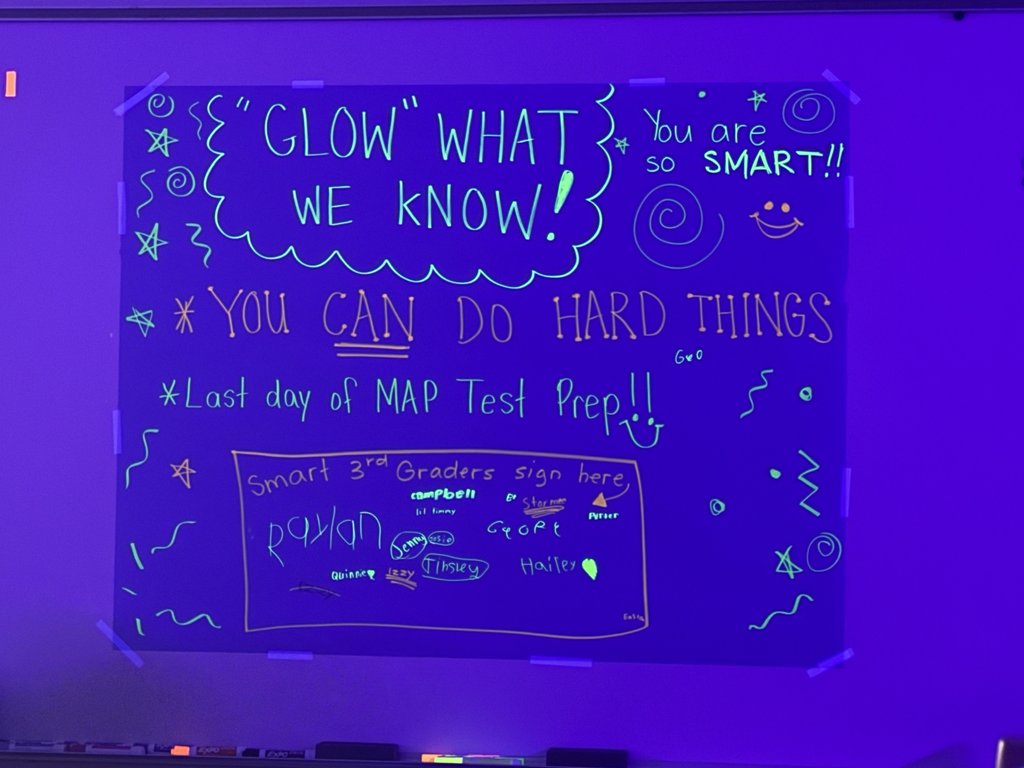 "GLOW" WHAT
WE KNOW!
You are
so SMART!!
* YOU CAN DO HARD THINGS
*Last day of MAP Test Prep!!
Smart 3rd Graders sign here
campbell
lil timmy
Storm
Porter
Raylan
Jenny
Josie
George
Quinnie
Izzy
Tinsley
Hailey